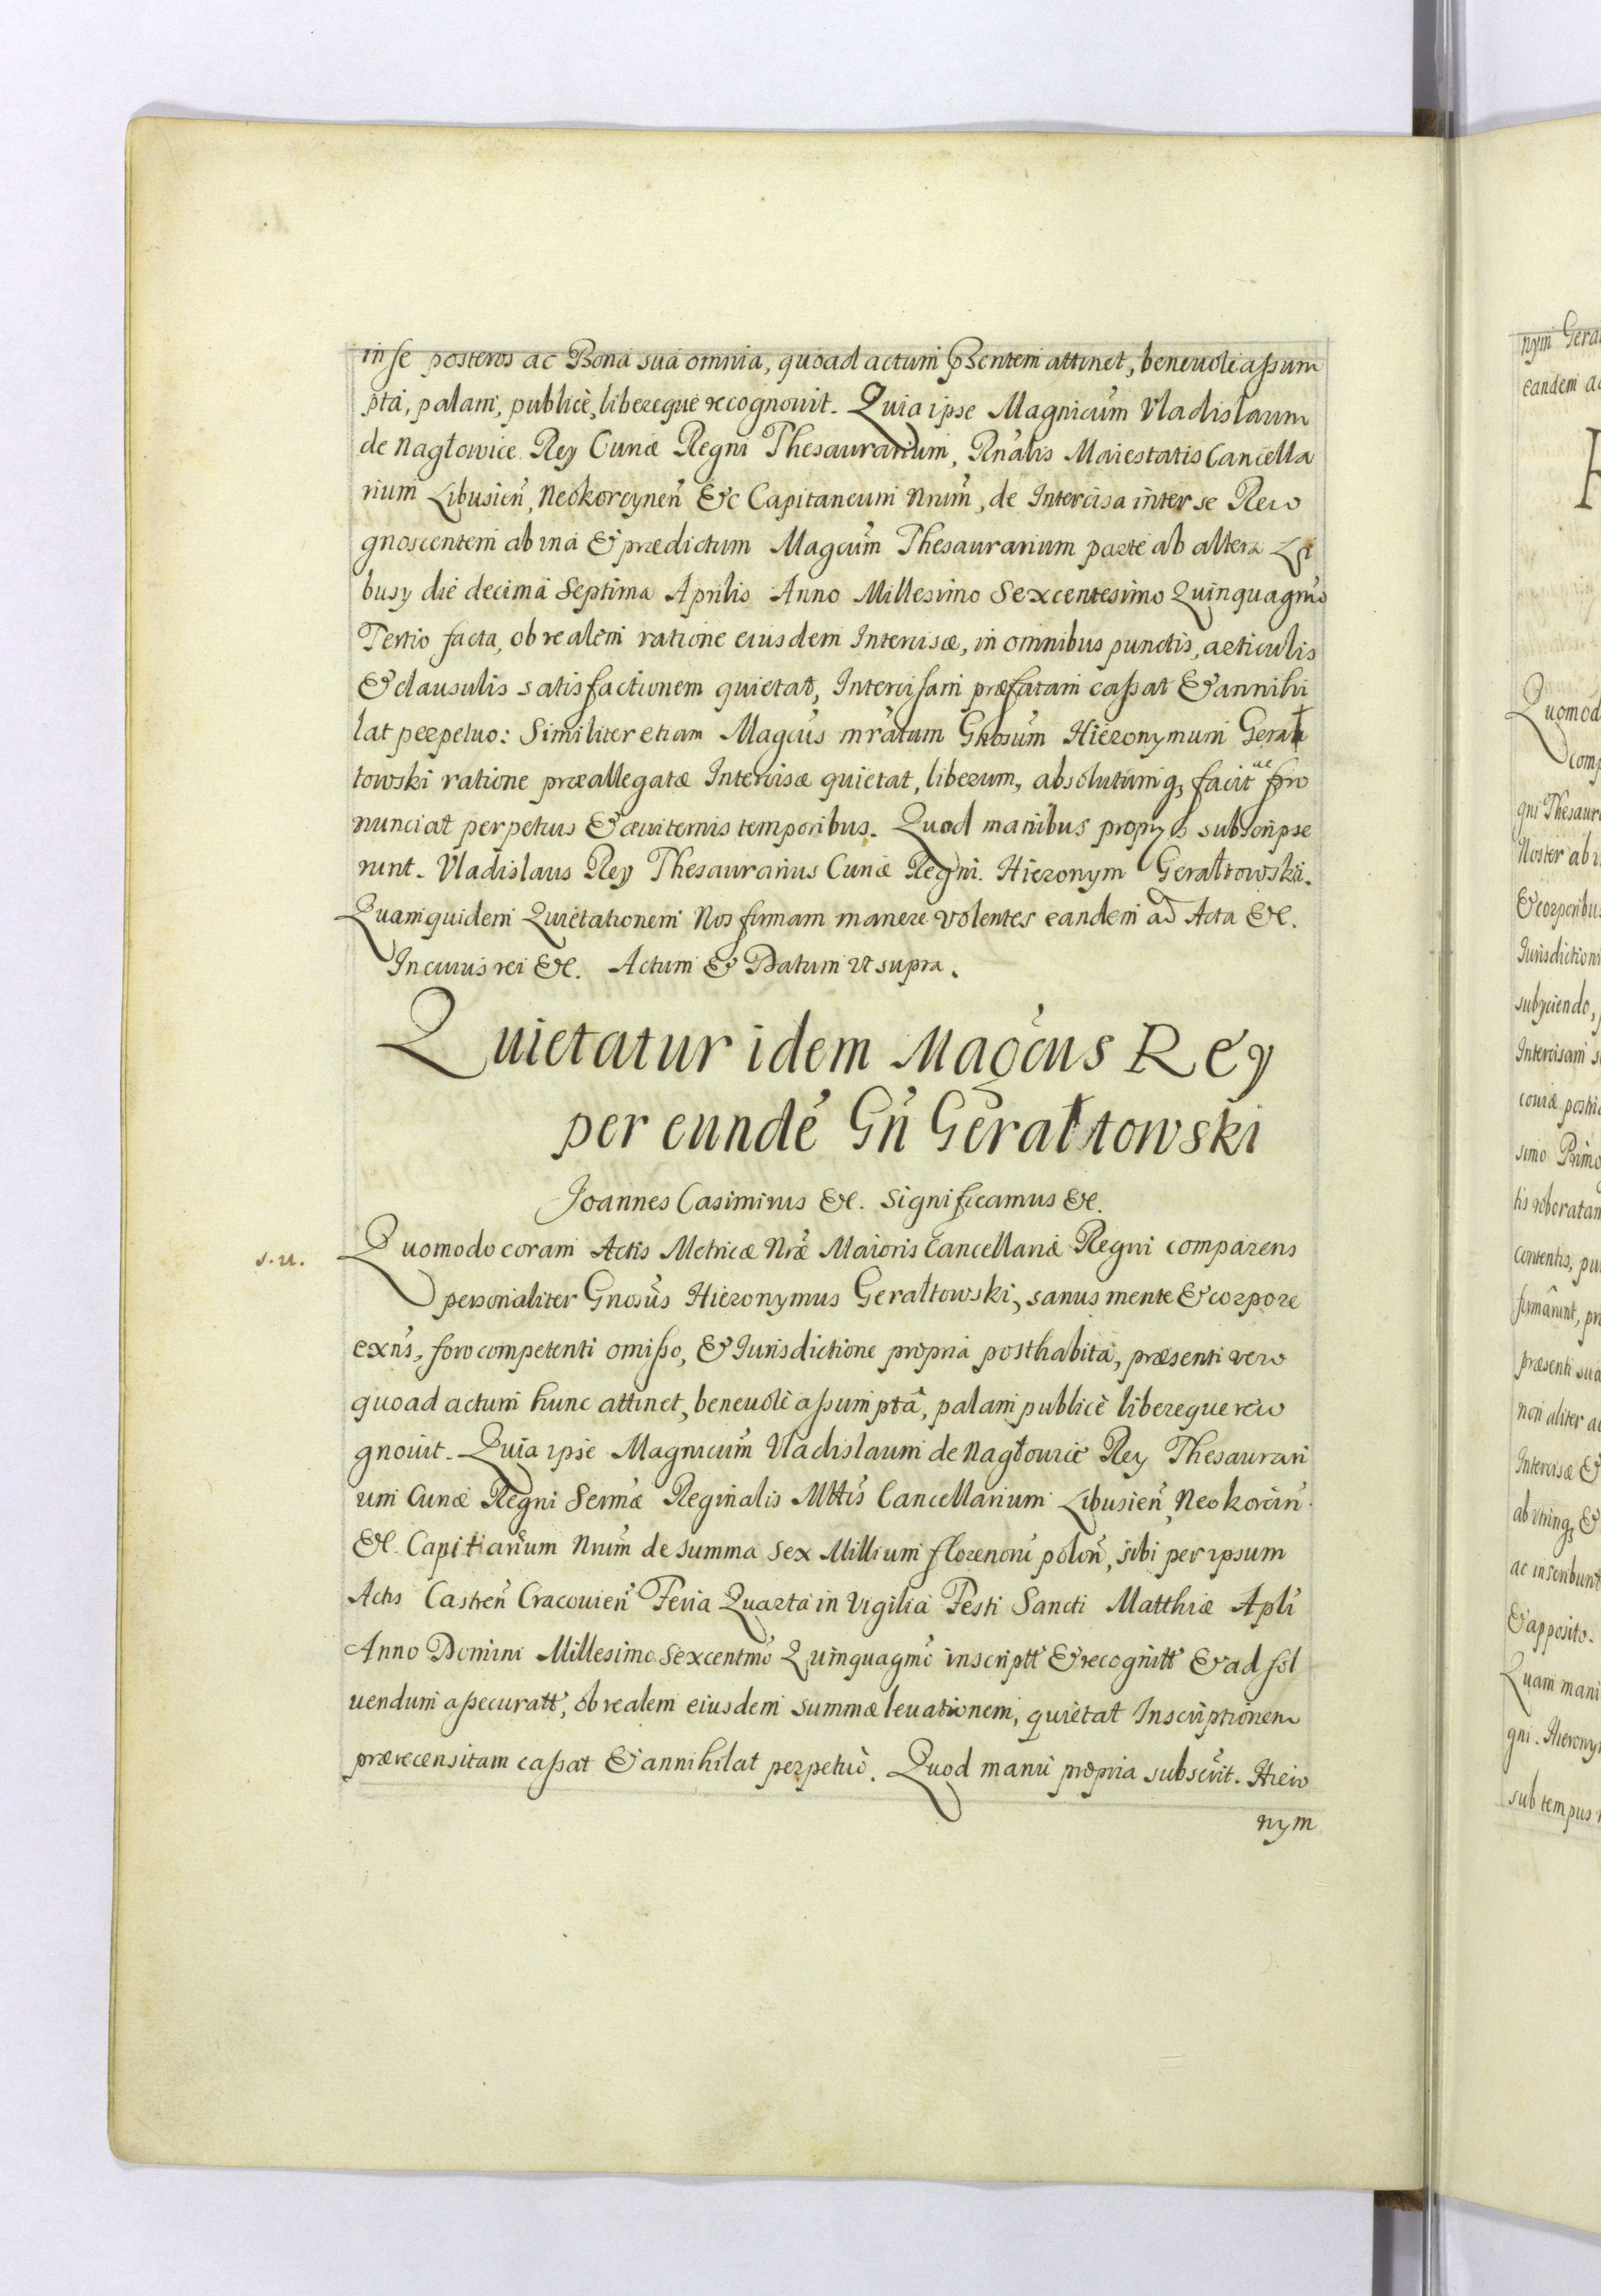 in se posteros ac Bona sua omnia, quoad actum p̃sentem attinet, beneuole assum
pta, palam, publicè, libereque recognouit. Quia ipse Magnicum̃ Vladislaum
de Nagłowice Rey Curiæ Regni Thesaurarium, Rñalis Maiestatis Cancella
rium Libusień, Neokorcynen̄ &c Capitaneum Nrum̃, de Intercisa inter se Reco
gnoscentem ab vna & prædictum Magcum̃ Thesaurarium parte ab altera Li
busy die decima Septima Aprilis Anno Millesimo Sexcentesimo Quinquagm̃o
Tertio facta, ob realem ratione eiusdem Intercisæ, in omnibus punctis, articulis
& clausulis satisfactionem quietat, Intercisam præfatam cassat & annihi
lat perpetuo: Similiter etiam Magcus̃ mr̃atum Gnosum̃ Hieronymum Gerał
towski ratione præallegatæ Intercisæ quietat, liberum, absolutumq, facit ac pro
nunciat perpetuis & æuiternis temporibus. Quod manibus proprijs subscripse
runt. Vladislaus Rey Thesaurarius Curiæ Regni. Hieronym Gerałtowski.
Quam quidem Quietationem Nos firmam manere volentes eandem ad Acta &c.
In cuius rei &c. Actum & Datum vt supra.
Quietatur idem Magcus̃ Rey
per eundẽ Gñ Gerałtowski
Joannes Casimirus &c. Significamus &c.
s. u.
Quomodo coram Actis Metricæ Nræ̃ Maioris Cancellariæ Regni comparens
personaliter Gnosus̃ Hieronymus Gerałtowski, sanus mente & corpore
exñs, foro competenti omisso, & Iurisdictione propria posthabita, præsenti vero
quoad actum hunc attinet, beneuolè assumptâ, palam publicè libereque reco
gnouit. Quia ipse Magnicum̃ Vladislaum de Nagłowice Rey Thesaurari
um Curiæ Regni Serm̃æ Reginalis Mttis̃ Cancellarium Libusień, Neokorcin̄
&c. Capitaneum Nrum̃ de summa Sex Millium florenorũ polon̄, sibi per ipsum
Actis Castren̄ Cracouien̄ Feria Quarta in Vigilia Festi Sancti Matthiæ Apli̇̃
Anno Domini Millesimo Sexcentmõ Quinquagmõ inscriptt̃ & recognitt̃ & ad sol
uendum assecuratt̃, ob realem eiusdem summæ leuationem, quietat Inscriptionem
prærecensitam cassat & annihilat perpetuò. Quod manu propria subscr̃it. Hiero
nym
nym Gera
eandem a
Quomod
comp
gni Thesaur
Noster ab v
& corporibus
Iurisdictioni
subijciendo,
Intercisam s
couiæ postri
simo Primo
tis roboratam
contentis, pu
firmârunt, pr
præsenti sua
non aliter ac
Intercisæ &
ab vtrinq, &
ac inscribunt
& apposito.
Quam mani
gni. Hierony
sub tempus